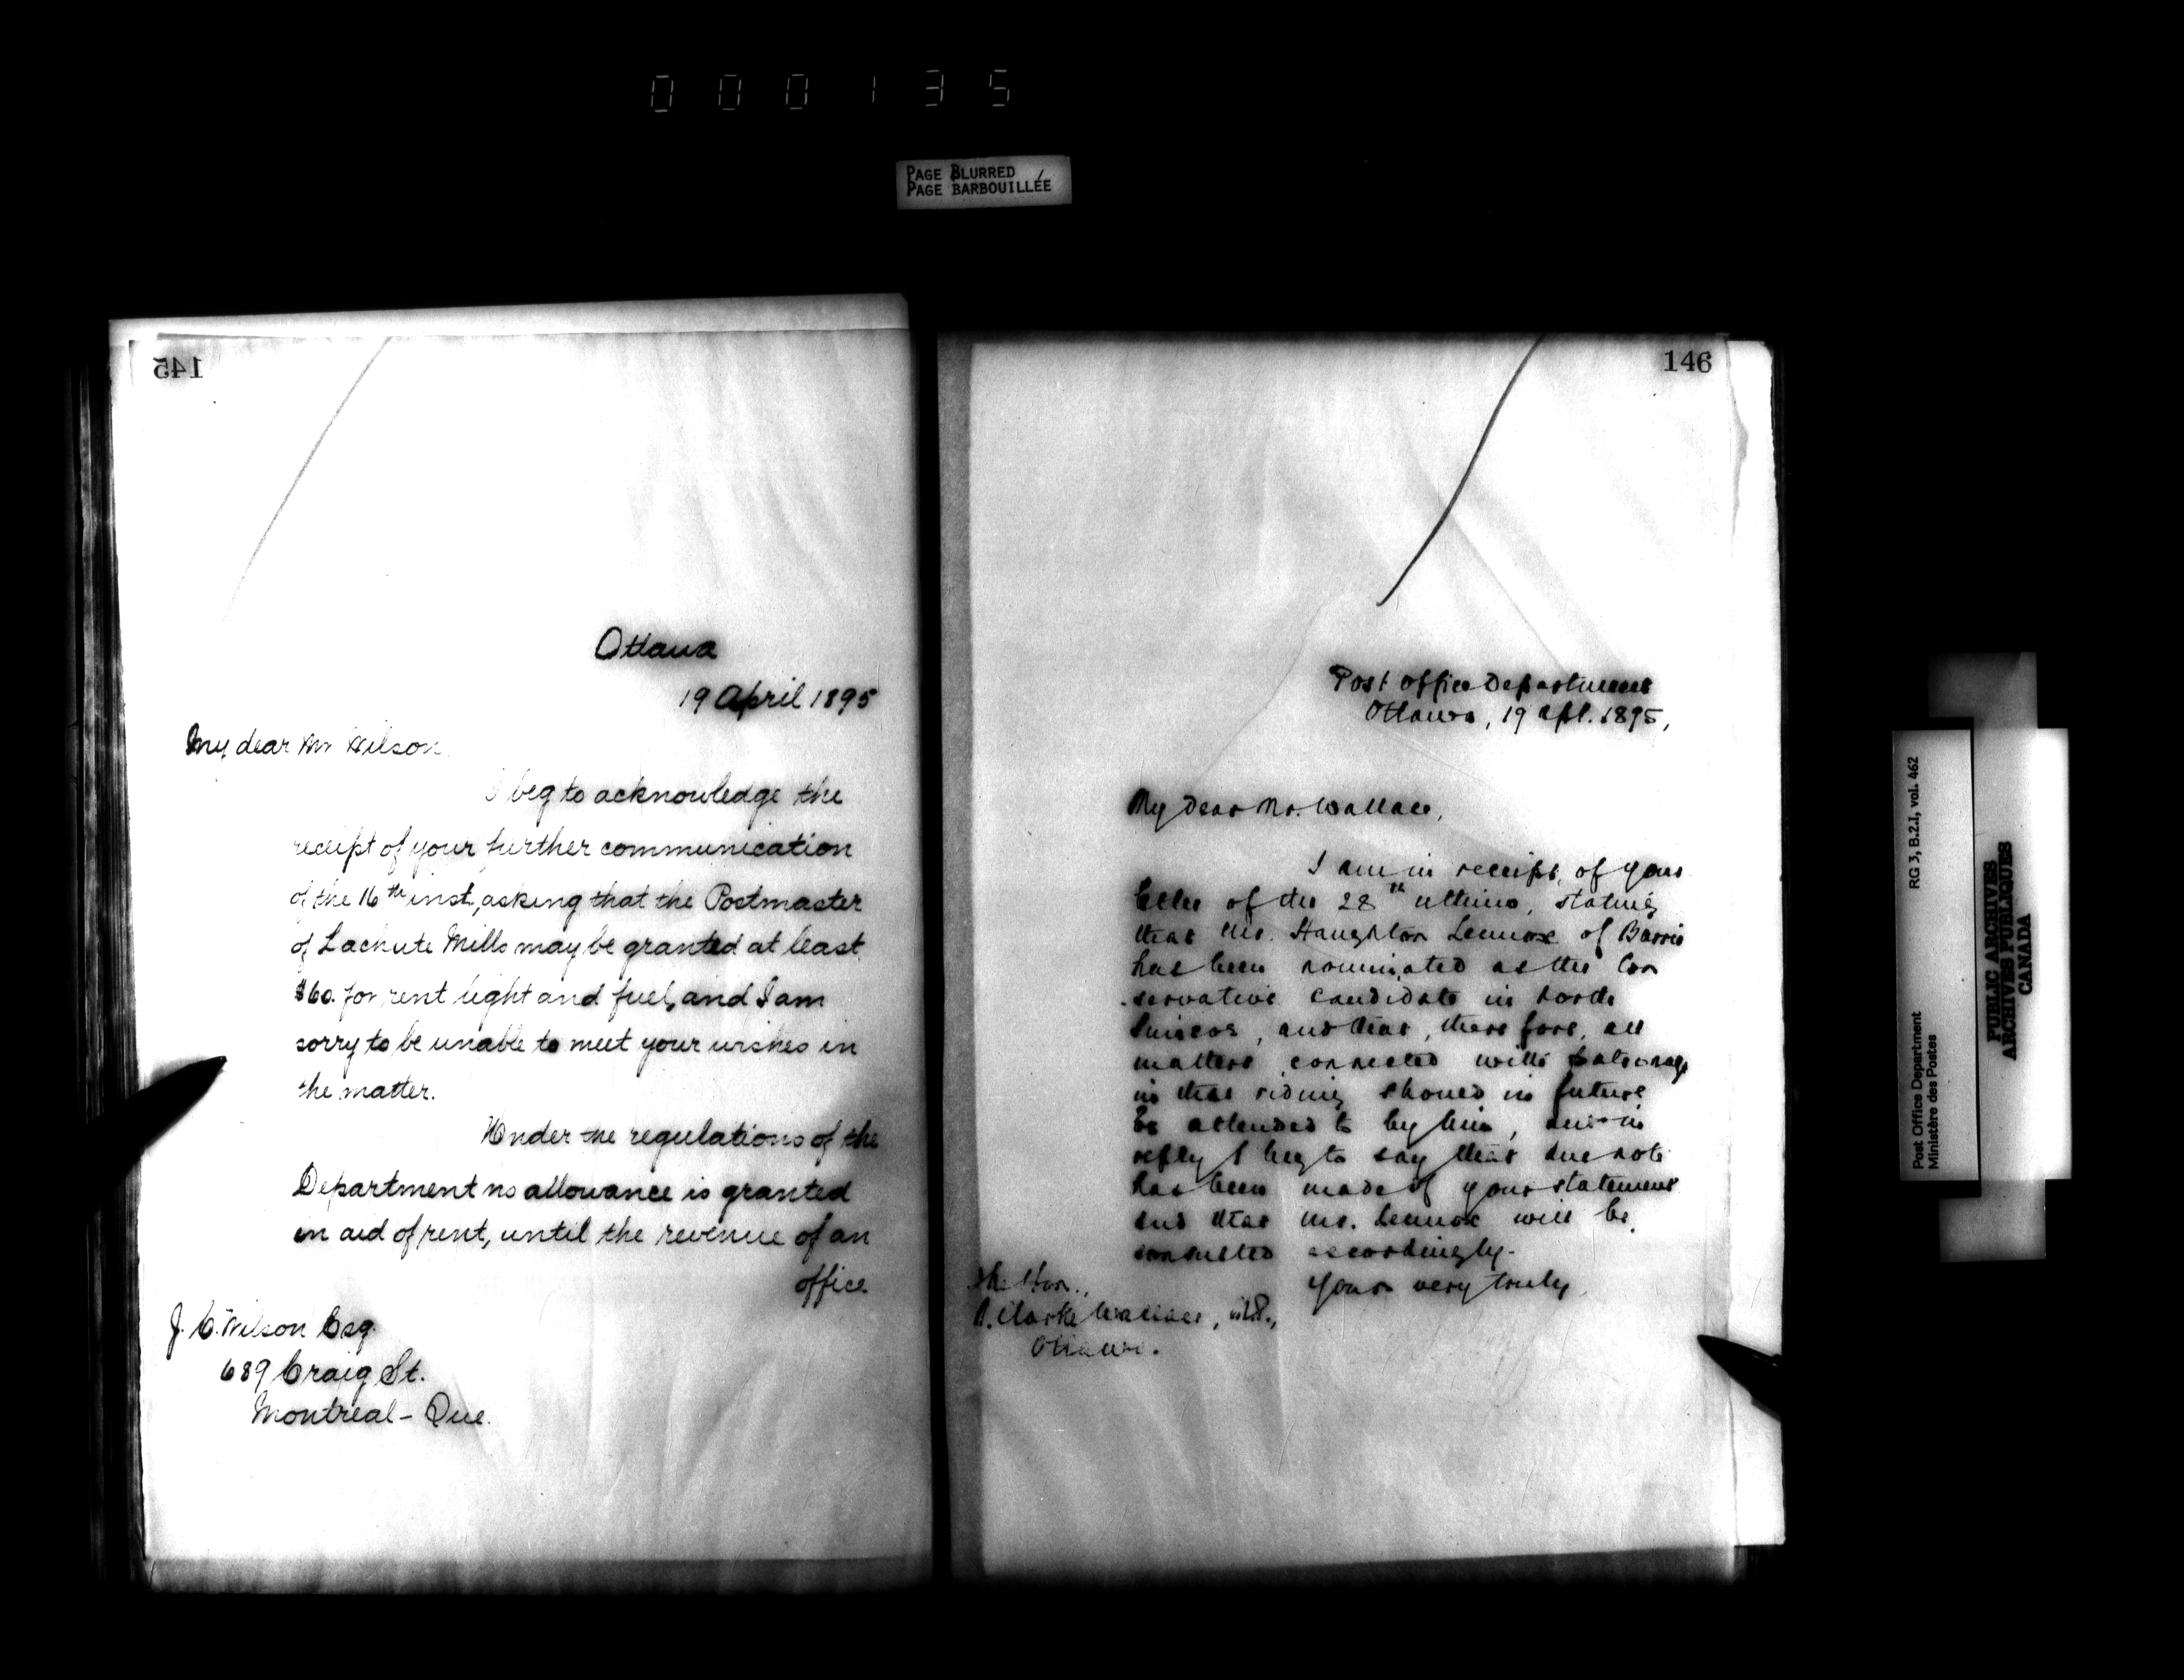 000135
PAGE BLURRED
PAGE BARBOUILLÉE
145
Ottawa
19 April 1895
My dear Mr Wilson,
I beg to acknowledge the
receipt of your further communication
of the 16th inst, asking that the Postmaster
of Lachute Mills may be granted at least
$60. for rent light and fuel, and I am
sorry to be unable to meet your wishes in
the matter.
Under the regulations of the
Department no allowance is granted
in aid of rent, until the revenue of an
office.
J. C. Wilson Esq.
689 Craig St.
Montreal - Que.
146
Post Office Department
Ottawa, 19 Apl. 1895,
My Dear Mr. Wallace,
I am in receipt of your
letter of the 28th ultimo, stating
that Mr. Haughton Lennox of Barrie
has been nominated as the Con
servative candidate in North
Simcoe, and that, therefore, all
matters connected with patronage
in that riding should in future
be attended to by him, and in
reply I beg to say that due note
has been made of your statement
and that Mr. Lennox will be
consulted accordingly.
Yours very truly
The Hon.,
N. Clarke Wallace, M.P.,
Ottawa.
Post Office Department
Ministère des Postes
RG 3, B.2.I, vol. 462
PUBLIC ARCHIVES
ARCHIVES PUBLIQUES
CANADA